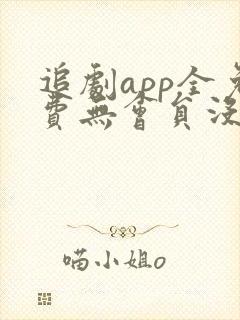 追劇app全免
費無會員沒
喵小姐o